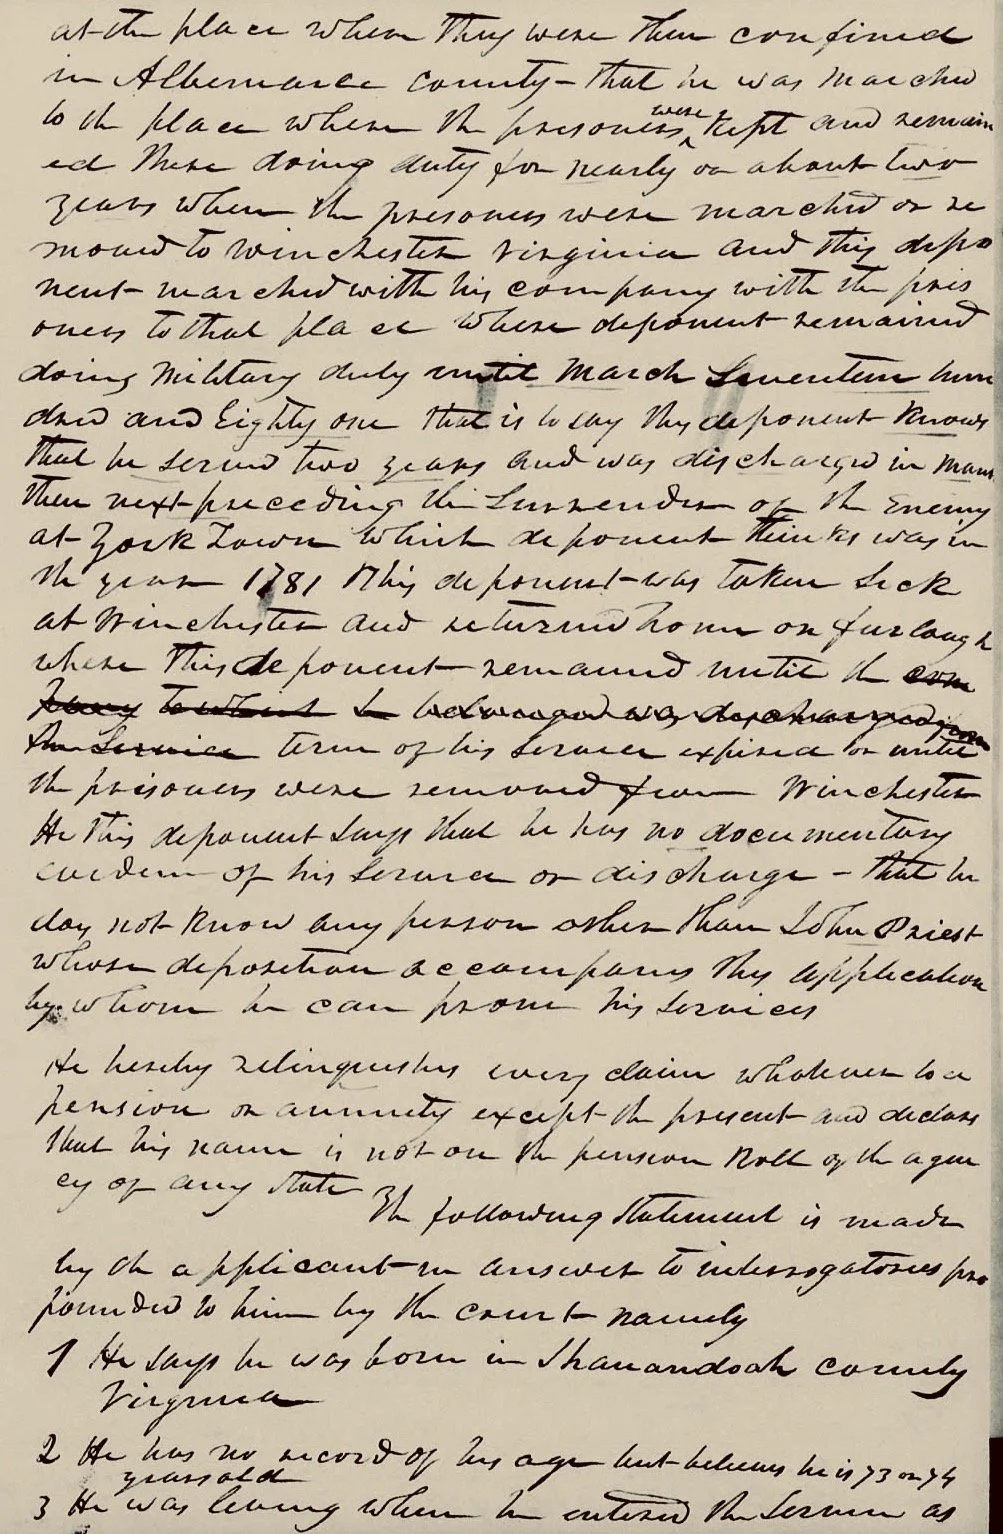 at the place where they were then confined
in Albemarle county - that he was marched
to the place where the prisoners were kept and remain
ed there doing duty for nearly or about two
years when the prisoners were marched or re
moved to Winchester Virginia and this depo
nent marched with his company with the pris
oners to that place where deponent remained
doing military duty until March Seventeen hun
dred and Eighty one that is to say this deponent knows
that he served two years and was discharged in March
then next preceding the Surrender of the Enemy
at York Town which deponent thinks was in
the year 1781 This deponent was taken sick
at Winchester and returned home on furlough
where this deponent remained until the com
pany to which he belonged was discharged from
the Service term of his service expired or until
the prisoners were removed from Winchester
He this deponent says that he has no documentary
evidence of his service or discharge - that he
does not know any person other than John Priest
whose deposition accompanies this application
by whom he can prove his services
He hereby relinquishes every claim whatever to a
pension or annuity except the present and declares
that his name is not on the pension Roll of the agen
cy of any State
The following statement is made
by the applicant in answer to interrogatories pro
pounded to him by the court namely
1 He says he was born in Shanandoah county
Virginia
2 He has no record of his age but believes he is 73 or 74
years old
3 He was living when he entered the service as